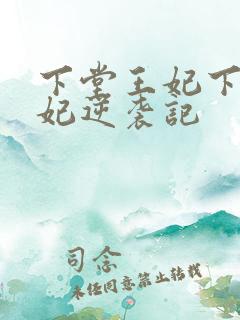 下堂王妃下
妃逆袭记
司念
未经同意禁止转载